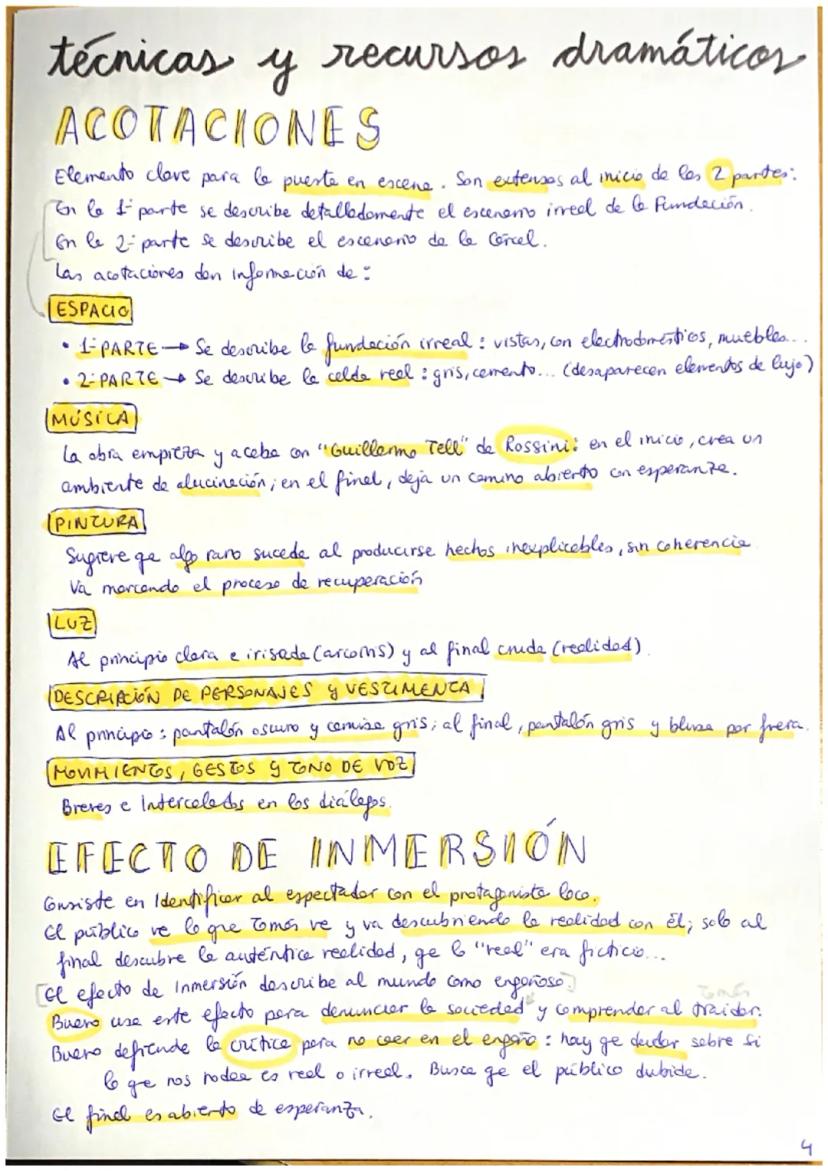 técnicas y recursos dramáticos
ACOTACIONES
Elemento clave para la puesta en escena. Son extensas al inicio de las 2 partes:
En la 1ª parte se describe detalladamente el escenario irreal de la Fundación.
En la 2ª parte se describe el escenario de la Cárcel.
Las acotaciones dan información de:
ESPACIO
• 1ª PARTE → Se describe la fundación irreal: vistas, con electrodomésticos, muebles...
• 2ª PARTE → Se describe la celda real: gris, cemento... (desaparecen elementos de lujo)
MÚSICA
La obra empieza y acaba con "Guillermo Tell" de Rossini: en el inicio, crea un
ambiente de alucinación; en el final, deja un camino abierto con esperanza.
PINTURA
Sugiere qe algo raro sucede al producirse hechos inexplicables, sin coherencia
Va marcando el proceso de recuperación
LUZ
Al principio clara e irisada (arcoiris) y al final cruda (realidad).
DESCRIPCIÓN DE PERSONAJES y VESTIMENTA
Al principio: pantalón oscuro y camisa gris; al final, pantalón gris y blusa por fuera.
MOVIMIENTOS, GESTOS y TONO DE VOZ
Breves e Intercalados en los diálogos.
EFECTO DE INMERSIÓN
Consiste en Identificar al espectador con el protagonista loco.
El público ve lo que Tomás ve y va descubriendo la realidad con él; solo al
final descubre la auténtica realidad, qe lo "real" era ficticio...
[El efecto de Inmersión describe al mundo como engañoso.]
Tomás
Buero usa este efecto para denunciar la sociedad y comprender al traidor.
Buero defiende la crítica para no caer en el engaño: hay qe dudar sobre si
lo qe nos rodea es real o irreal. Busca qe el público dubide.
El final es abierto de esperanza.
4